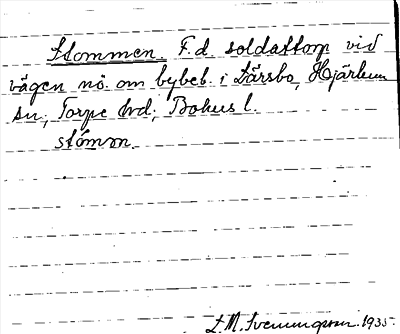 Stommen. F.d. soldattorp vid
vägen nö. om bybeb. i Lärsbo, Hjärtum
sn, Torpe hd; Bohus l.
stómm.
L. M. Svenungsson. 1935.